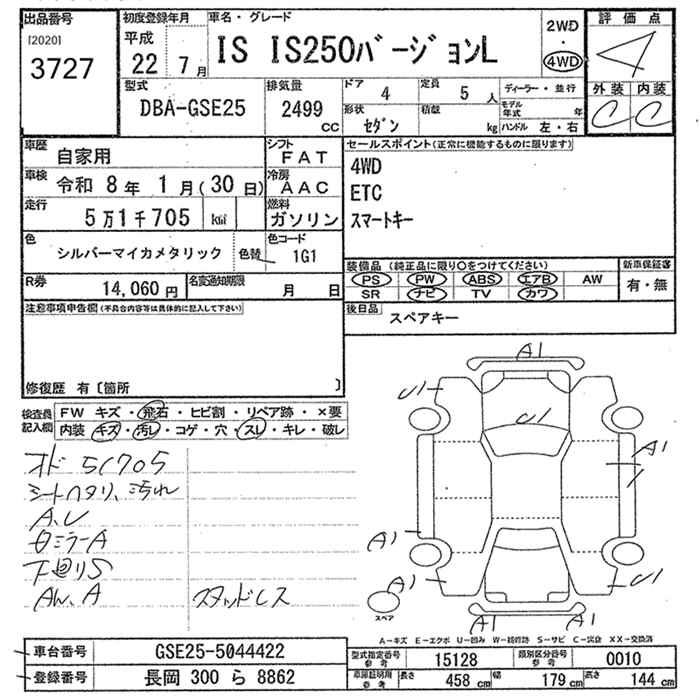 出品番号
[2020]
3727
初度登録年月
平成
22 7月
車名・グレード
IS IS250バージョンL
2WD
・
4WD
評価点
4
外装 内装
C C
型式
DBA-GSE25
排気量
2499
cc
ドア
4
定員
5 人
ディーラー・並行
モデル年式 年
形状
セダン
積載
kg
ハンドル 左・右
車歴
自家用
シフト
FAT
車検
令和 8年 1月(30日)
冷房
AAC
走行
5万1千705 km
燃料
ガソリン
色
シルバーマイカメタリック
色替
色コード
1G1
R券
14,060 円
名変通知期限
月 日
セールスポイント(正常に機能するものに限ります)
4WD
ETC
スマートキー
装備品 (純正品に限り○をつけてください)
PS PW ABS エアB AW
SR ナビ TV カワ
新車保証書
有・無
後日品
スペアキー
注意事項申告欄(不具合内容等は具体的に記入して下さい)
修復歴 有〔箇所 〕
検査員記入欄
FW キズ・飛石・ヒビ割・リペア跡・×要
内装 キズ・汚レ・コゲ・穴・スレ・キレ・破レ
オド 51705
シートヘタリ、汚れ
A,U
ミラーA
下廻りS
スタッドレス
A1
U1
U1
A1
A1
A1
U1
A1
A1
スペア
A-キズ E-エクボ U-凹み W-補修跡 S-サビ C-腐食 XX-交換済
車台番号
GSE25-5044422
登録番号
長岡 300 ら 8862
型式指定番号
参考
15128
類別区分番号
参考
0010
車庫証明用
参考
長さ
458 cm
幅
179 cm
高さ
144 cm